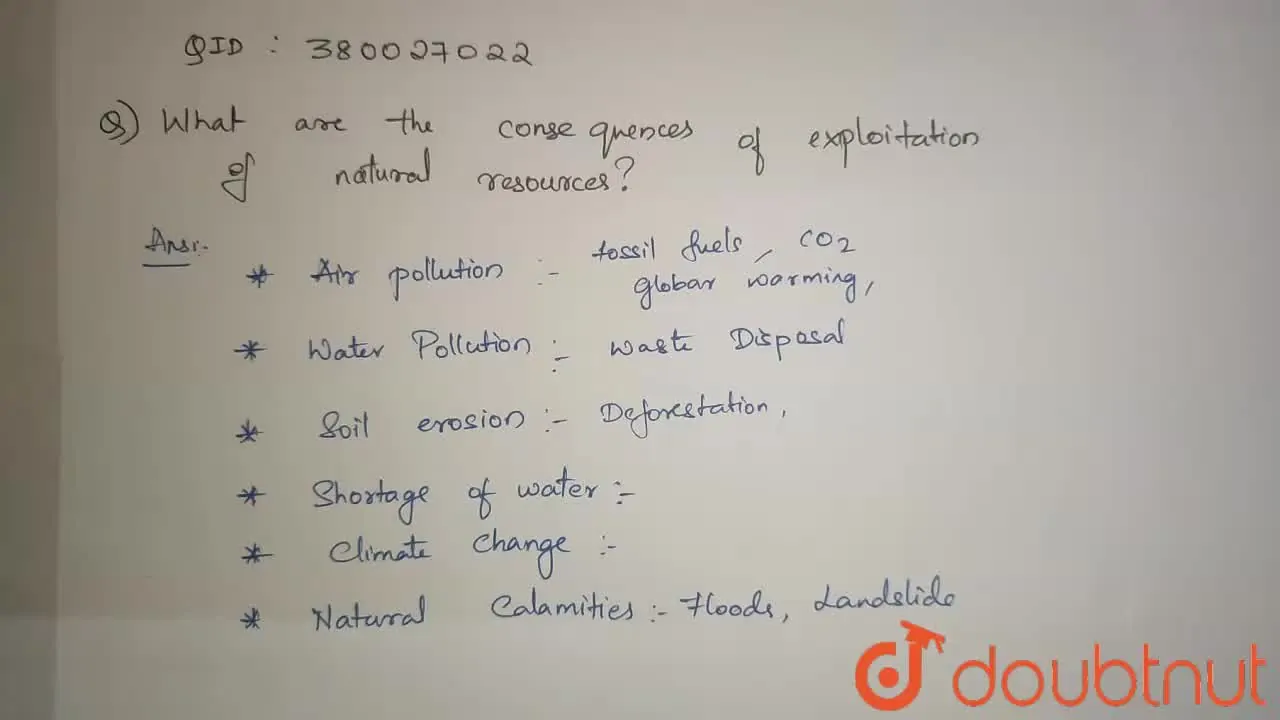 QID : 380027022
Q) What are the consequences of exploitation
of natural resources?
Ans:-
* Air pollution :- fossil fuels, CO2
globar warming,
* Water Pollution :- waste Disposal
* Soil erosion :- Deforestation,
* Shortage of water :-
* Climate change :-
* Natural Calamities :- Floods, Landslide
doubtnut